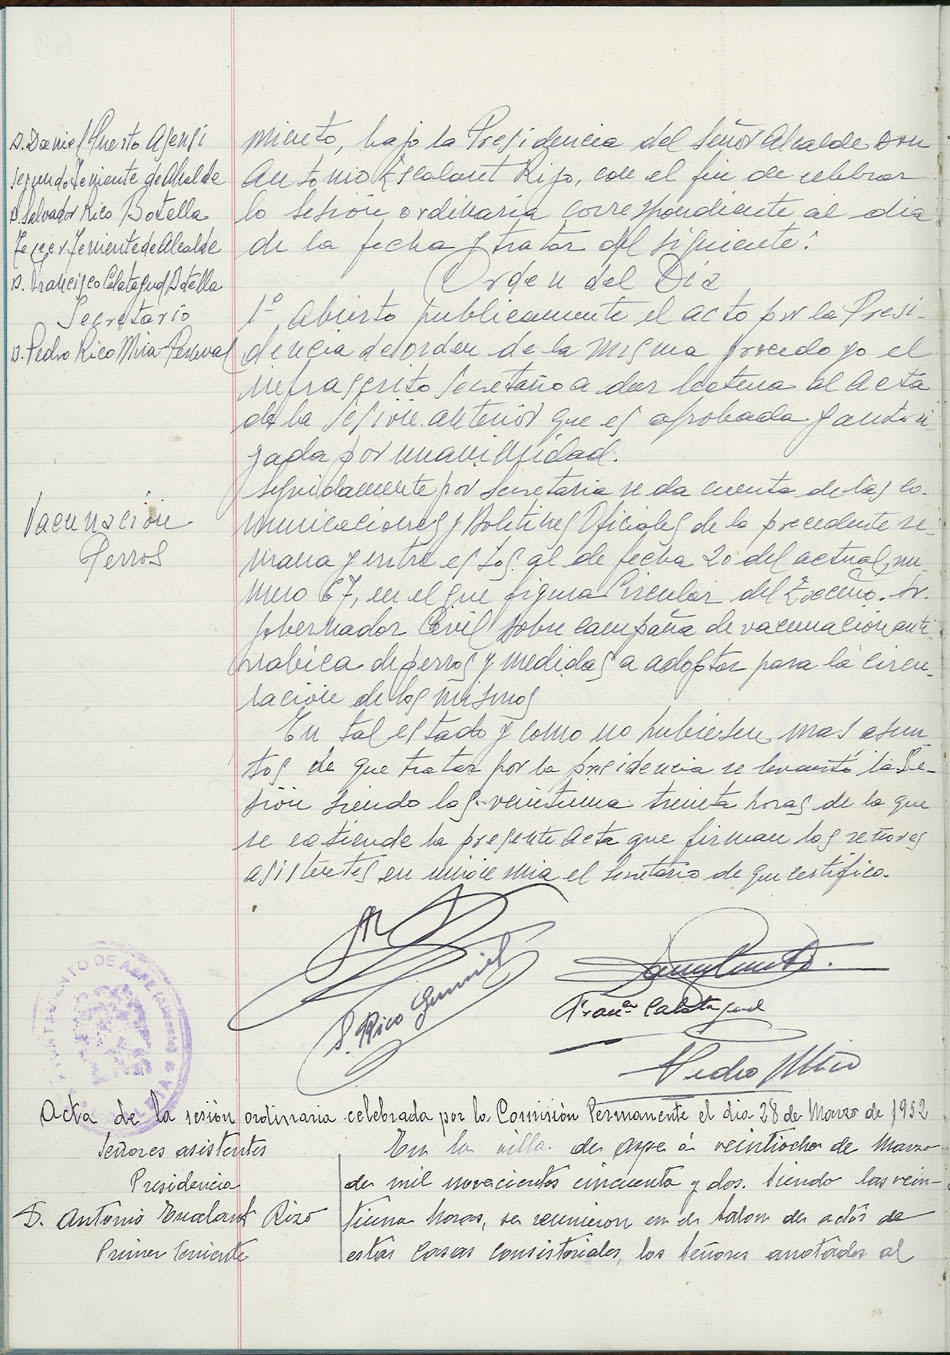 D. Daniel Puerto Asensi
Segundo Teniente de Alcalde
D. Salvador Rico Botella
Tercer Teniente de Alcalde
D. Francisco Calatayud Botella
Secretario
D. Pedro Rico Mira Perceval
miento, bajo la Presidencia del Señor Alcalde Don
Antonio Escolaret Rizo, con el fin de celebrar
la sesión ordinaria correspondiente al día
de la fecha y tratar del siguiente:
Orden del Día
1º Abierto publicamente el acto por la Presi-
dencia de orden de la misma procedo yo el
infrascrito Secretario a dar lectura al acta
de la sesión anterior que es aprobada y autori-
zada por unanimidad.
Vacunación
Perros
Seguidamente por Secretaria se da cuenta de las co-
municaciones y Boletines Oficiales de la precedente se-
mana y entre estos, al de fecha 20 del actual, nu-
mero 67, en el que figura Circular del Excmo. Sr.
Gobernador Civil sobre campaña de vacunación anti-
rabica de perros y medidas a adoptar para la circu-
lación de los mismos
En tal estado y como no hubiesen mas asun-
tos de que tratar por la presidencia se levantó la Se-
sión siendo las veintiuna treinta horas de la que
se extiende la presente acta que firman los señores
asistentes en unión mia el Secretario de que certifico.
S. Rico
Franco Calatayud
Pedro Rico
AYUNTAMIENTO DE ASPE (ALICANTE)
Acta de la sesión ordinaria celebrada por la Comisión Permanente el dia 28 de Marzo de 1952
Señores asistentes
Presidencia
D. Antonio Escolaret Rizo
Primer Teniente
En la villa de Aspe á veintiocho de Marzo
de mil novecientos cincuenta y dos. Siendo las vein-
tiuna horas, se reunieron en el Salon de actos de
estas Casas Consistoriales, los Señores anotados al